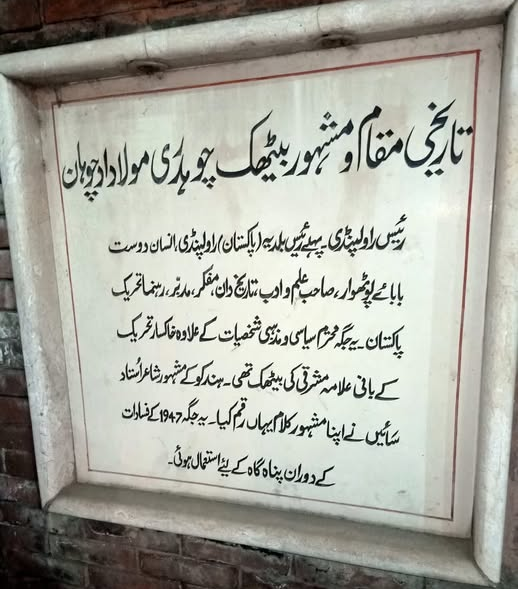 تاریخی مقام و مشہور بیٹھک چوہدری مولاداد چوہان
رئیس راولپنڈی۔ پہلے رئیس بلدیہ (پاکستان) راولپنڈی، انسان دوست
بابائے پوٹھوار، صاحب علم و ادب، تاریخ دان، مفکر، مدبّر، رہنما تحریک
پاکستان۔ یہ جگہ محترم سیاسی و مذہبی شخصیات کے علاوہ خاکسار تحریک
کے بانی علامہ مشرقی کی بیٹھک تھی۔ ہندکو کے مشہور شاعر اُستاد
سائیں نے اپنا مشہور کلام یہاں رقم کیا۔ یہ جگہ 1947 کے فسادات
کے دوران پناہ گاہ کے لیئے استعمال ہوئی۔